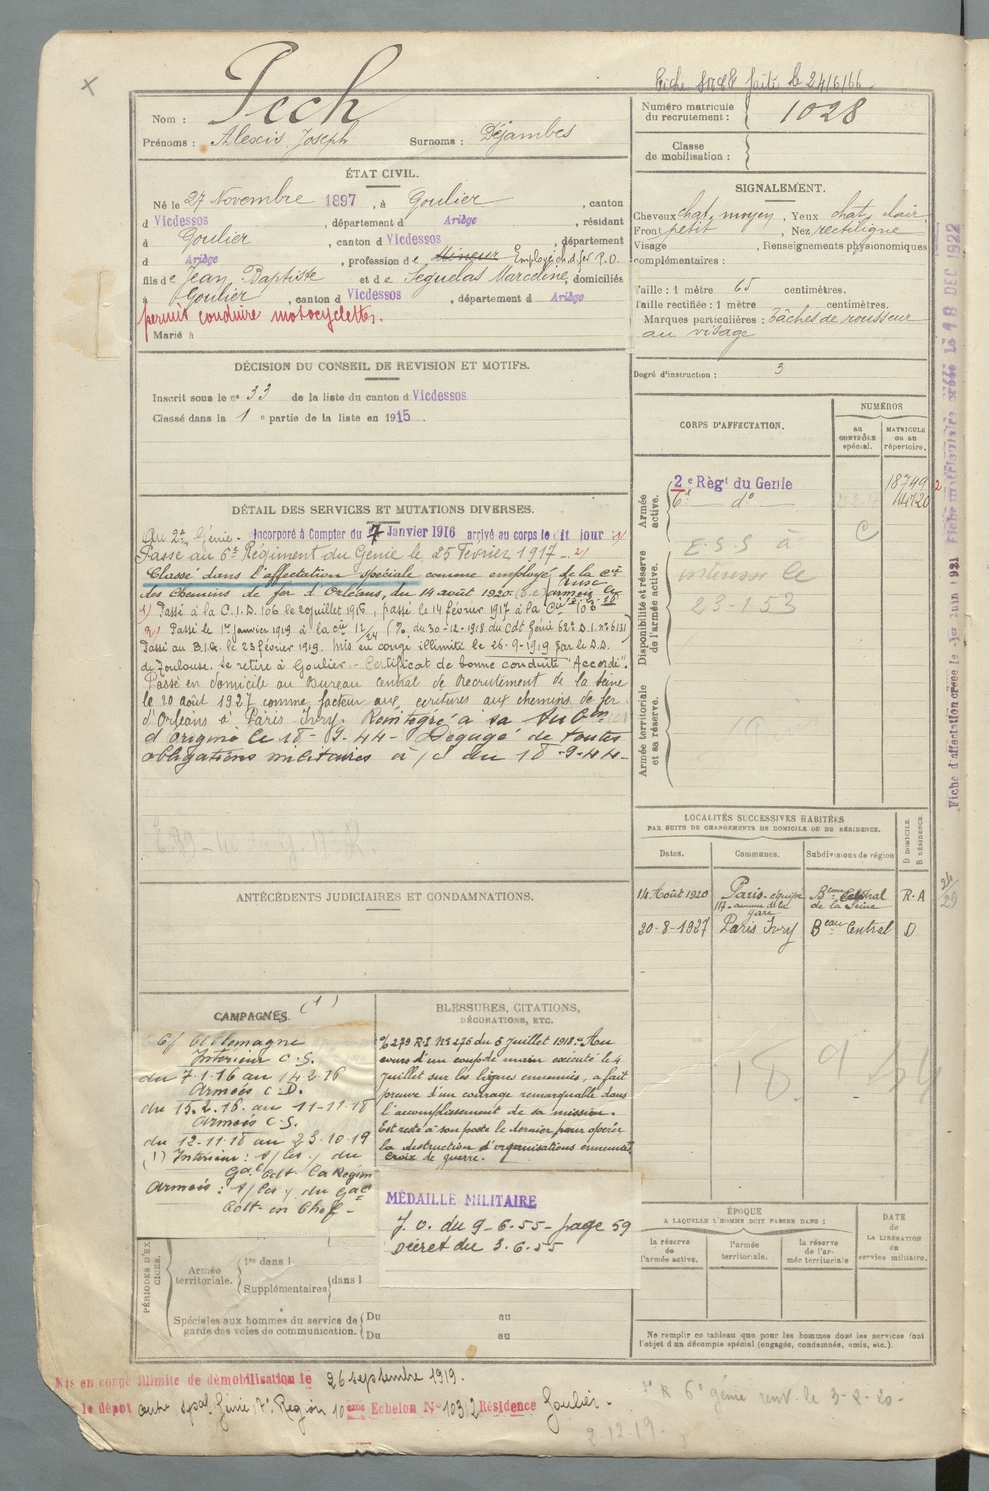 Fiche faite le 24/6/66
Nom : Pech
Prénoms : Alexis Joseph Surnoms : Déjambes
Numéro matricule du recrutement : 1028
Classe de mobilisation :
ÉTAT CIVIL.
Né le 27 Novembre 1897, à Goulier, canton
d Vicdessos, département d Ariège, résidant
à Goulier, canton d Vicdessos, département
d Ariège, profession de Mineur Employé ch. d. fer P.O.
fils de Jean Baptiste et de Seguelas Marceline, domiciliés
à Goulier, canton d Vicdessos, département d Ariège
permis conduire motocyclettes.
Marié à
SIGNALEMENT.
Cheveux chat. moyen, Yeux chat. clair,
Front petit, Nez rectiligne
Visage , Renseignements physionomiques
complémentaires :
Taille : 1 mètre 65 centimètres.
Taille rectifiée : 1 mètre centimètres.
Marques particulières : tâches de rousseur
au visage
Degré d'instruction : 3
DÉCISION DU CONSEIL DE REVISION ET MOTIFS.
Inscrit sous le n° 33 de la liste du canton d Vicdessos
Classé dans la 1e partie de la liste en 1915.
DÉTAIL DES SERVICES ET MUTATIONS DIVERSES.
Au 2e Génie. - Incorporé à Compter du 7 Janvier 1916 arrivé au corps le dit jour 1)
Passé au 6e Régiment du Génie le 25 Février 1917 - 2)
Classé dans l'affectation spéciale comme employé de la Cie
des chemins de fer d'Orléans, du 14 août 1920
1) Passé à la C.I.D. 106 le 20 juillet 1916, passé le 14 février 1917 à la Cie
2) Passé le 1er janvier 1919 à la Cie 12/24 (du 30-12-1918 du Cdt Génie 62e D.I. n° 6131)
Passé au B.I.G. le 23 février 1919. Mis en congé illimité le 26-9-1919 par le D.D.
de Toulouse. Se retire à Goulier. - Certificat de bonne conduite "Accordé".
Passé en domicile au Bureau central de Recrutement de la Seine
le 20 août 1927 comme facteur aux écritures aux chemins de fer
d'Orléans à Paris-Ivry. Réintégré à sa Subon
d'origine le 18-9-44 - Dégagé de toutes
obligations militaires à /c du 18-9-44-
CORPS D'AFFECTATION.
NUMÉROS
AU CONTRÔLE spécial.
MATRICULE OU AU répertoire.
Armée active.
2e Régt du Génie 18749
6e do 14720
Disponibilité et réserve de l'armée active.
E.S.S à
intéressé le
23-1-53
Armée territoriale et sa réserve.
Fiche d'affectation créée le 1er Juin 1921 Fiche matriculaire créée Le 18 DEC 1922
LOCALITÉS SUCCESSIVES HABITÉES
PAR SUITE DE CHANGEMENTS DE DOMICILE OU DE RÉSIDENCE.
Dates. Communes. Subdivisions de région D DOMICILE. R RÉSIDENCE.
14 Août 1920 Paris 117 avenue de la gare Beau Central de la Seine R.A
20-8-1927 Paris Ivry Beau Central D
24/29
ANTÉCÉDENTS JUDICIAIRES ET CONDAMNATIONS.
CAMPAGNES. (1)
C/ Allemagne
Intérieur C.S.
du 7.1.16 au 14.2.16
Armées C.D.
du 15.2.16. au 11-11-18
Armées C.S.
du 12.11.18 au 23.10.19
(1) Intérieur : s/les / du
Gal Cdt la Région
Armées : s/les / du Gal
Cdt en Chef -
BLESSURES, CITATIONS,
DÉCORATIONS, ETC.
O/279 R.I N° 276 du 5 juillet 1918. "Au
cours d'un coup de main exécuté le 4
juillet sur les lignes ennemies, a fait
preuve d'un courage remarquable dans
l'accomplissement de sa mission.
Est resté à son poste le dernier pour opérer
la destruction d'organisations ennemies
Croix de guerre.
MÉDAILLE MILITAIRE
J.O. du 9-6-55 - page 59
décret du 3.6.55
PÉRIODES D'EXERCICES.
Armée territoriale. 1re dans l
Supplémentaires dans l
Spéciales aux hommes du service de garde des voies de communication.
Du au
Du au
ÉPOQUE
A LAQUELLE L'HOMME DOIT PASSER DANS :
la réserve de l'armée active. l'armée territoriale. la réserve de l'armée territoriale
DATE de LA LIBÉRATION du service militaire.
Ne remplir ce tableau que pour les hommes dont les services font
l'objet d'un décompte spécial (engagés, condamnés, omis, etc.).
Mis en congé illimité de démobilisation le 26 septembre 1919.
le dépôt centre spal. Génie 17e Région 10eme Echelon N° 10312 Résidence Goulier.
6e génie renv. le 3-2-20-
2.12.19.